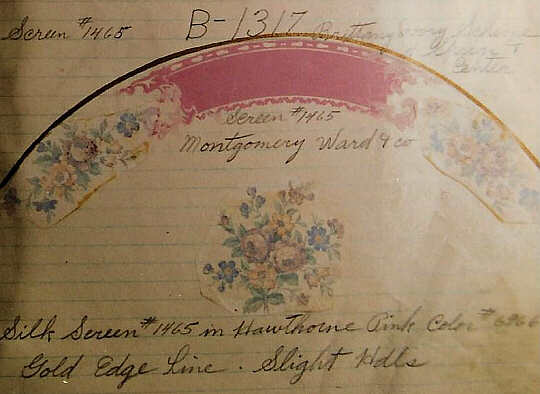 Screen #1465
B-1317 Brittany Ivory Scheme
Center
Screen #1465
Montgomery Ward & co
Silk Screen #1465 in Hawthorne Pink Color #6266
Gold Edge Line . Slight Hdls